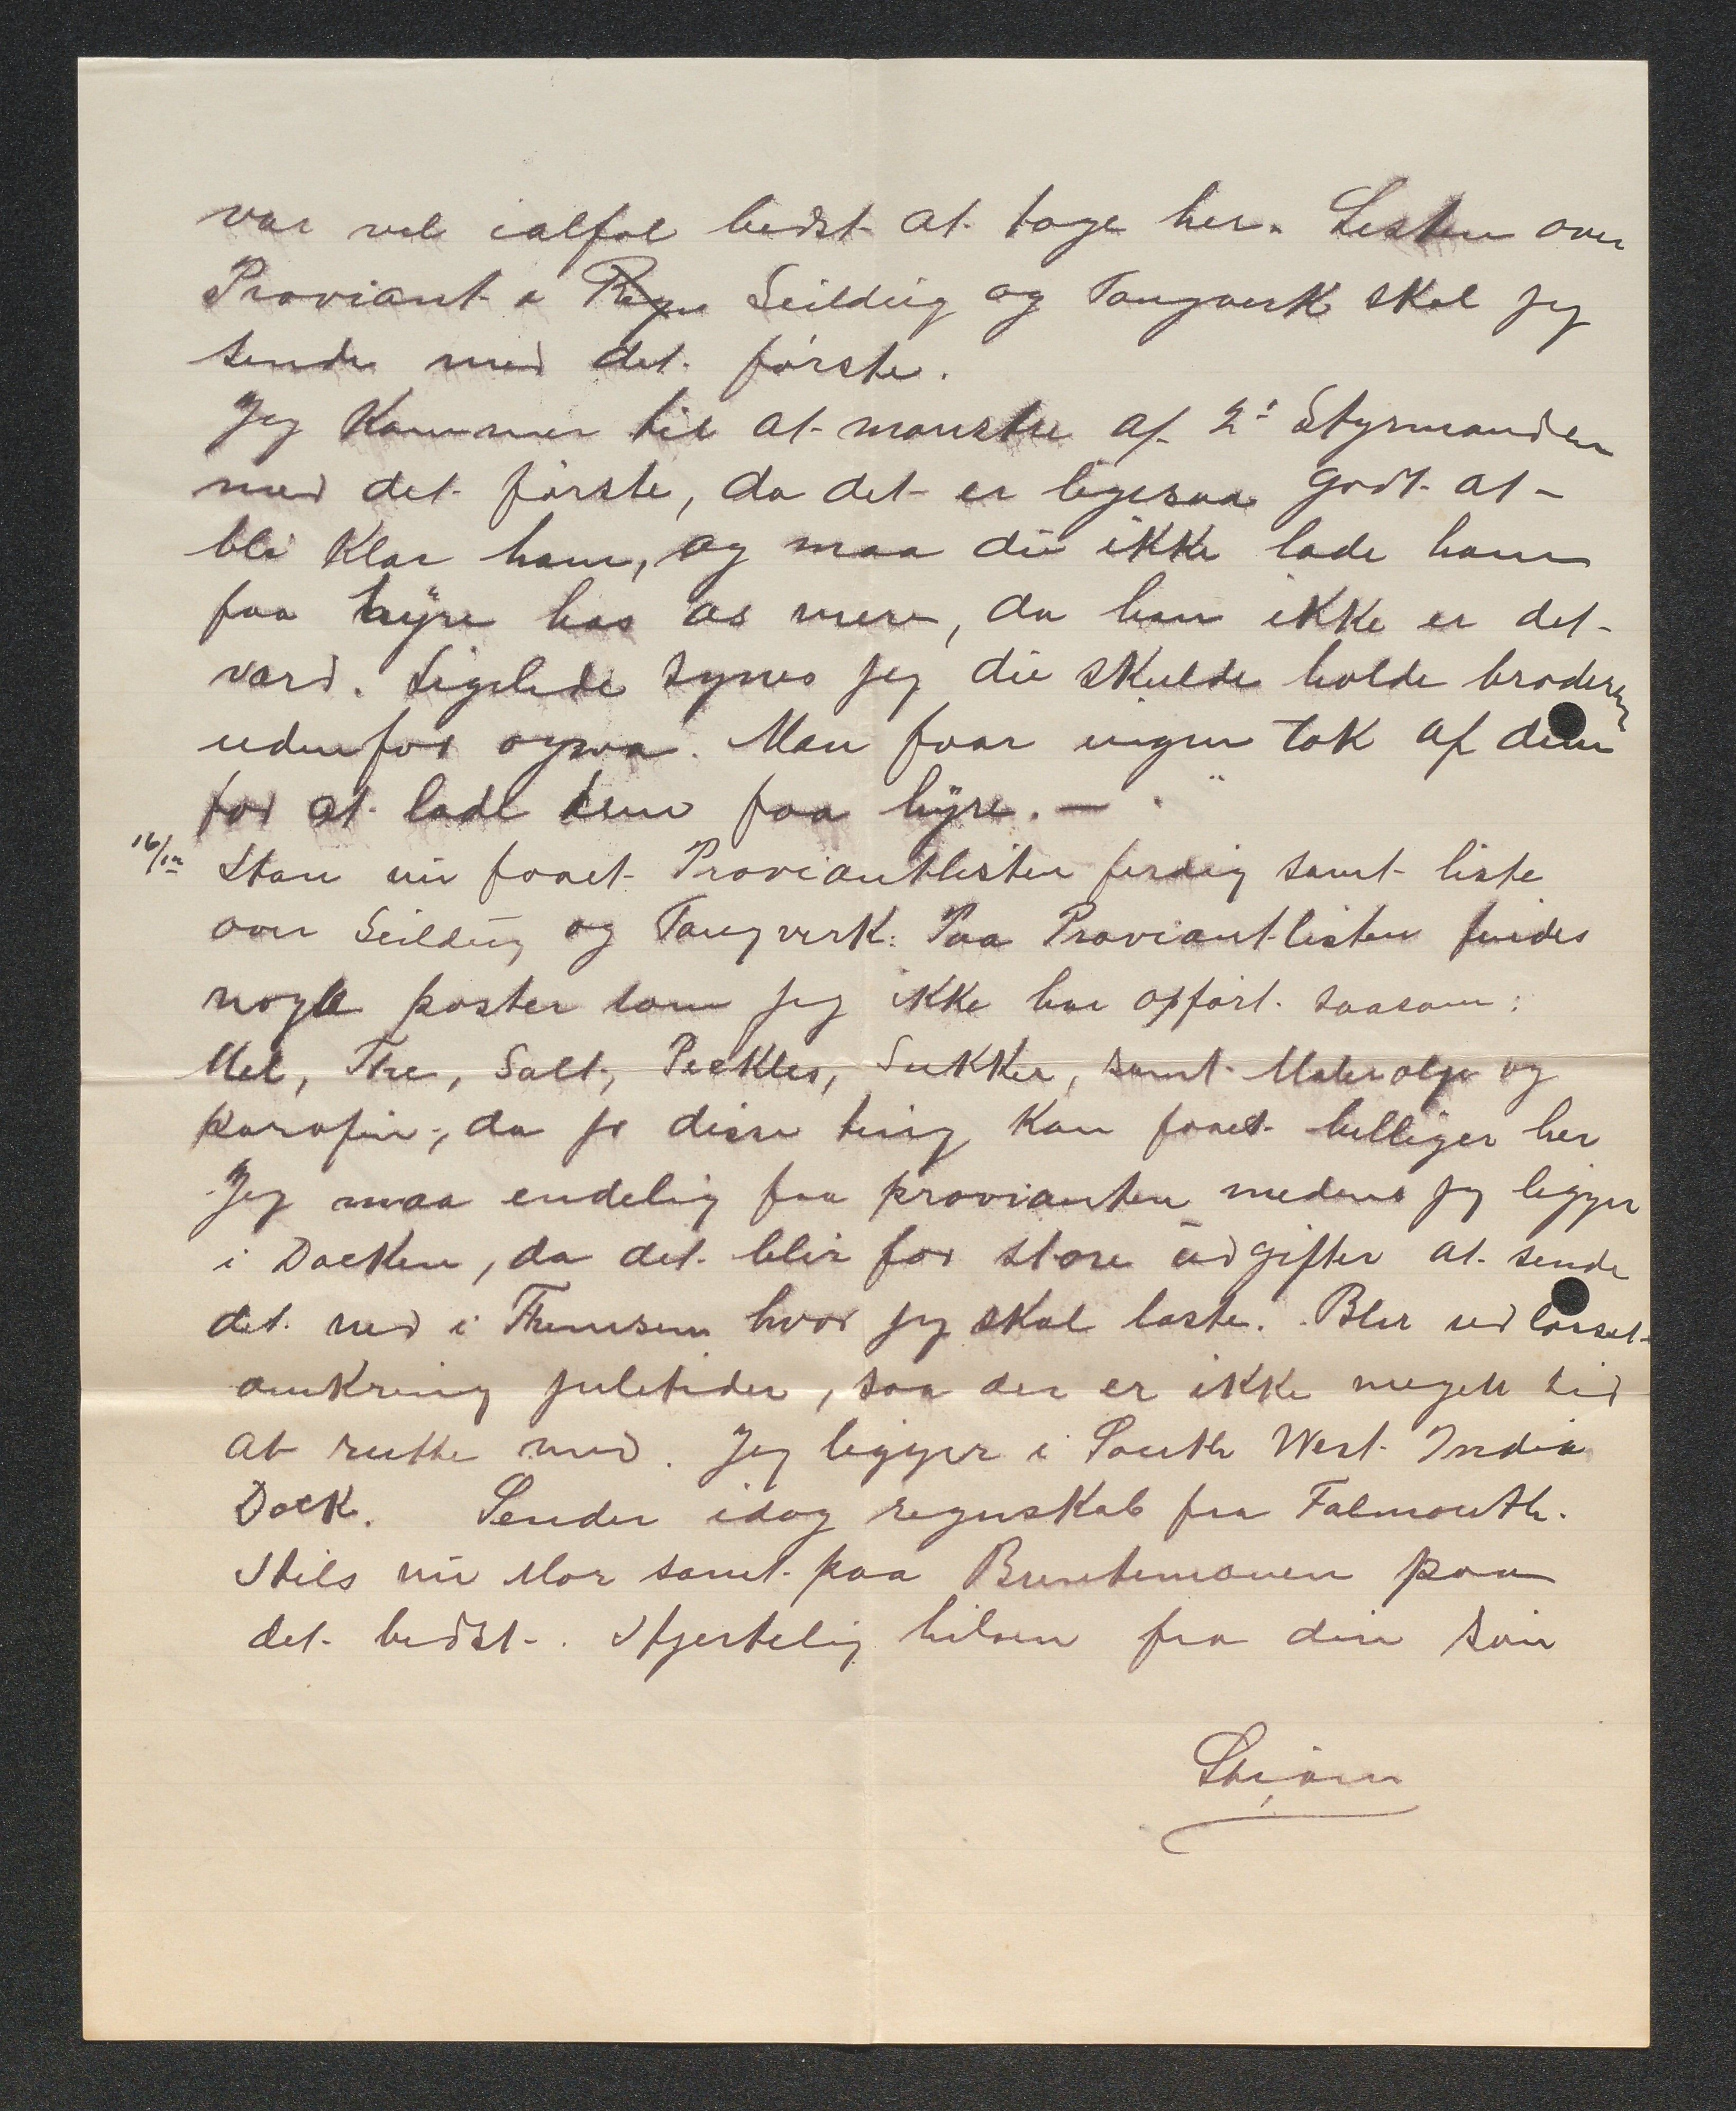 var vel ialfal bedst at tage her. Listen over
Proviant o Seildug og Taugverk skal jeg
sende med det første.
Jeg kommer til at mønstre af 2' Styrmanden
med det første, da det er ligesaa godt at
bli klar ham, og maa du ikke lade ham
faa hyre hos os mere, da han ikke er det
værd. Ligelede synes jeg du skulde holde broderen
udenfor ogsaa. Man faar ingen tak af dem
for at lade dem faa hyre. —
16/12 Han nu faaet Proviantlisten ferdig samt liste
over Seildug og Taugverk. Paa Proviantlisten findes
nogle poster som jeg ikke har opført saasom:
Mel, The, Salt, Peckles, Sukker, samt Malerolje og
parafin, da jo disse ting kan faaes billiger her
Jeg maa endelig faa provianten medens jeg ligger
i Docken, da det blir for store udgifter at sende
det ned i Themsen hvor jeg skal laste. Blir udlosset
omkring juletider, saa der er ikke meget tid
at rutte med. Jeg ligger i South West India
Dock. Sender idag regnskab fra Falmouth.
Hils nu Mor samt paa Buntemoven paa
det bedst. Hjertelig hilsen fra din søn